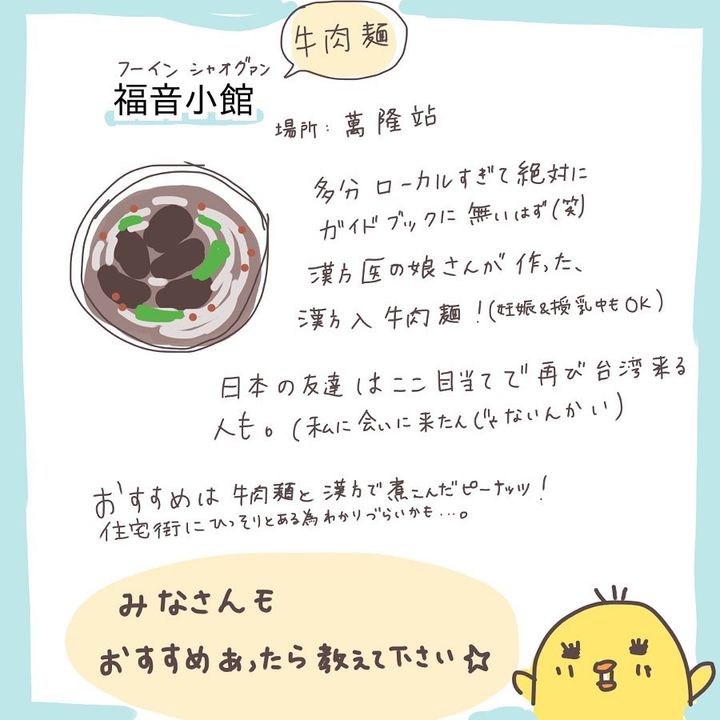 牛肉麺
フーイン シャオグァン
福音小館
場所：萬隆站
多分 ローカルすぎて絶対に
ガイドブックに無いはず(笑)
漢方医の娘さんが作った、
漢方入牛肉麺！(妊娠&授乳中もOK)
日本の友達はここ目当てで再び台湾来る
人も。(私に会いに来たんじゃないんかい)
おすすめは牛肉麺と漢方で煮こんだピーナッツ！
住宅街にひっそりとある為わかりづらいかも…。
みなさんも
おすすめあったら教えて下さい☆